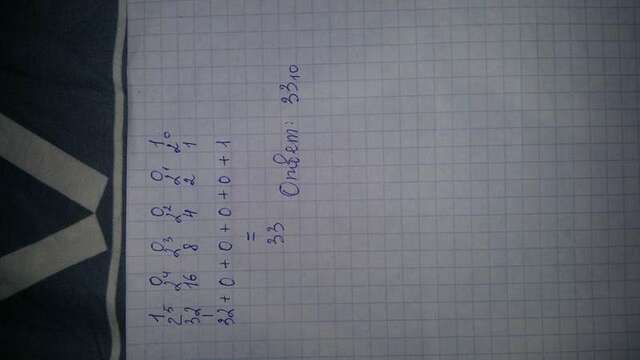 1 0 0 0 0 1
2⁵ 2⁴ 2³ 2² 2¹ 2⁰
32 16 8 4 2 1
32 + 0 + 0 + 0 + 0 + 1
=
33
Ответ: 33₁₀